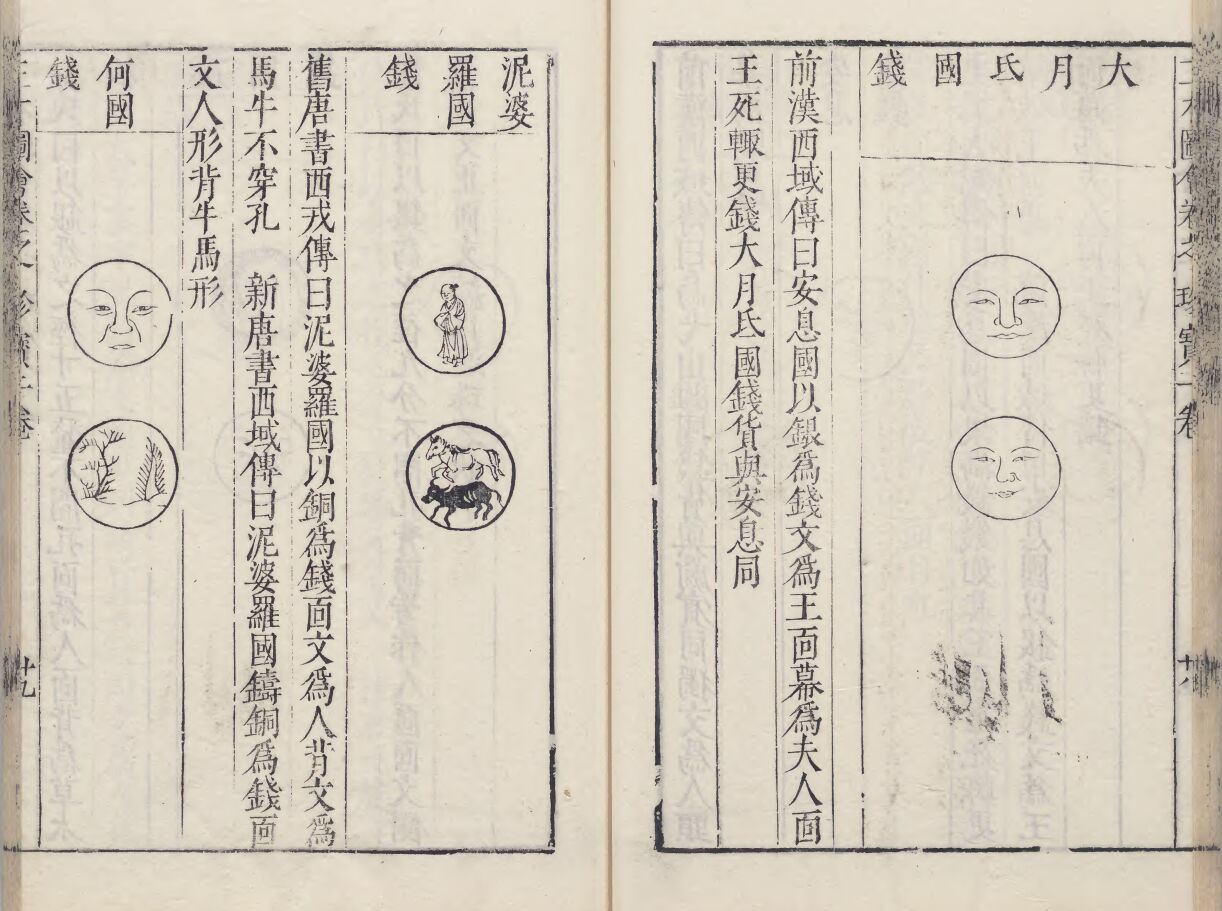 三才圖會卷之 珍寶一卷
十八
大月氏國錢
前漢西域傳曰安息國以銀爲錢文爲王面幕爲夫人面
王死輙更錢大月氏國錢貨與安息同
泥婆
羅國
錢
舊唐書西戎傳曰泥婆羅國以銅爲錢面文爲人背文爲
馬牛不穿孔 新唐書西域傳曰泥婆羅國鑄銅爲錢面
文人形背牛馬形
何國
錢
圖會卷之 珍寶一卷
十九